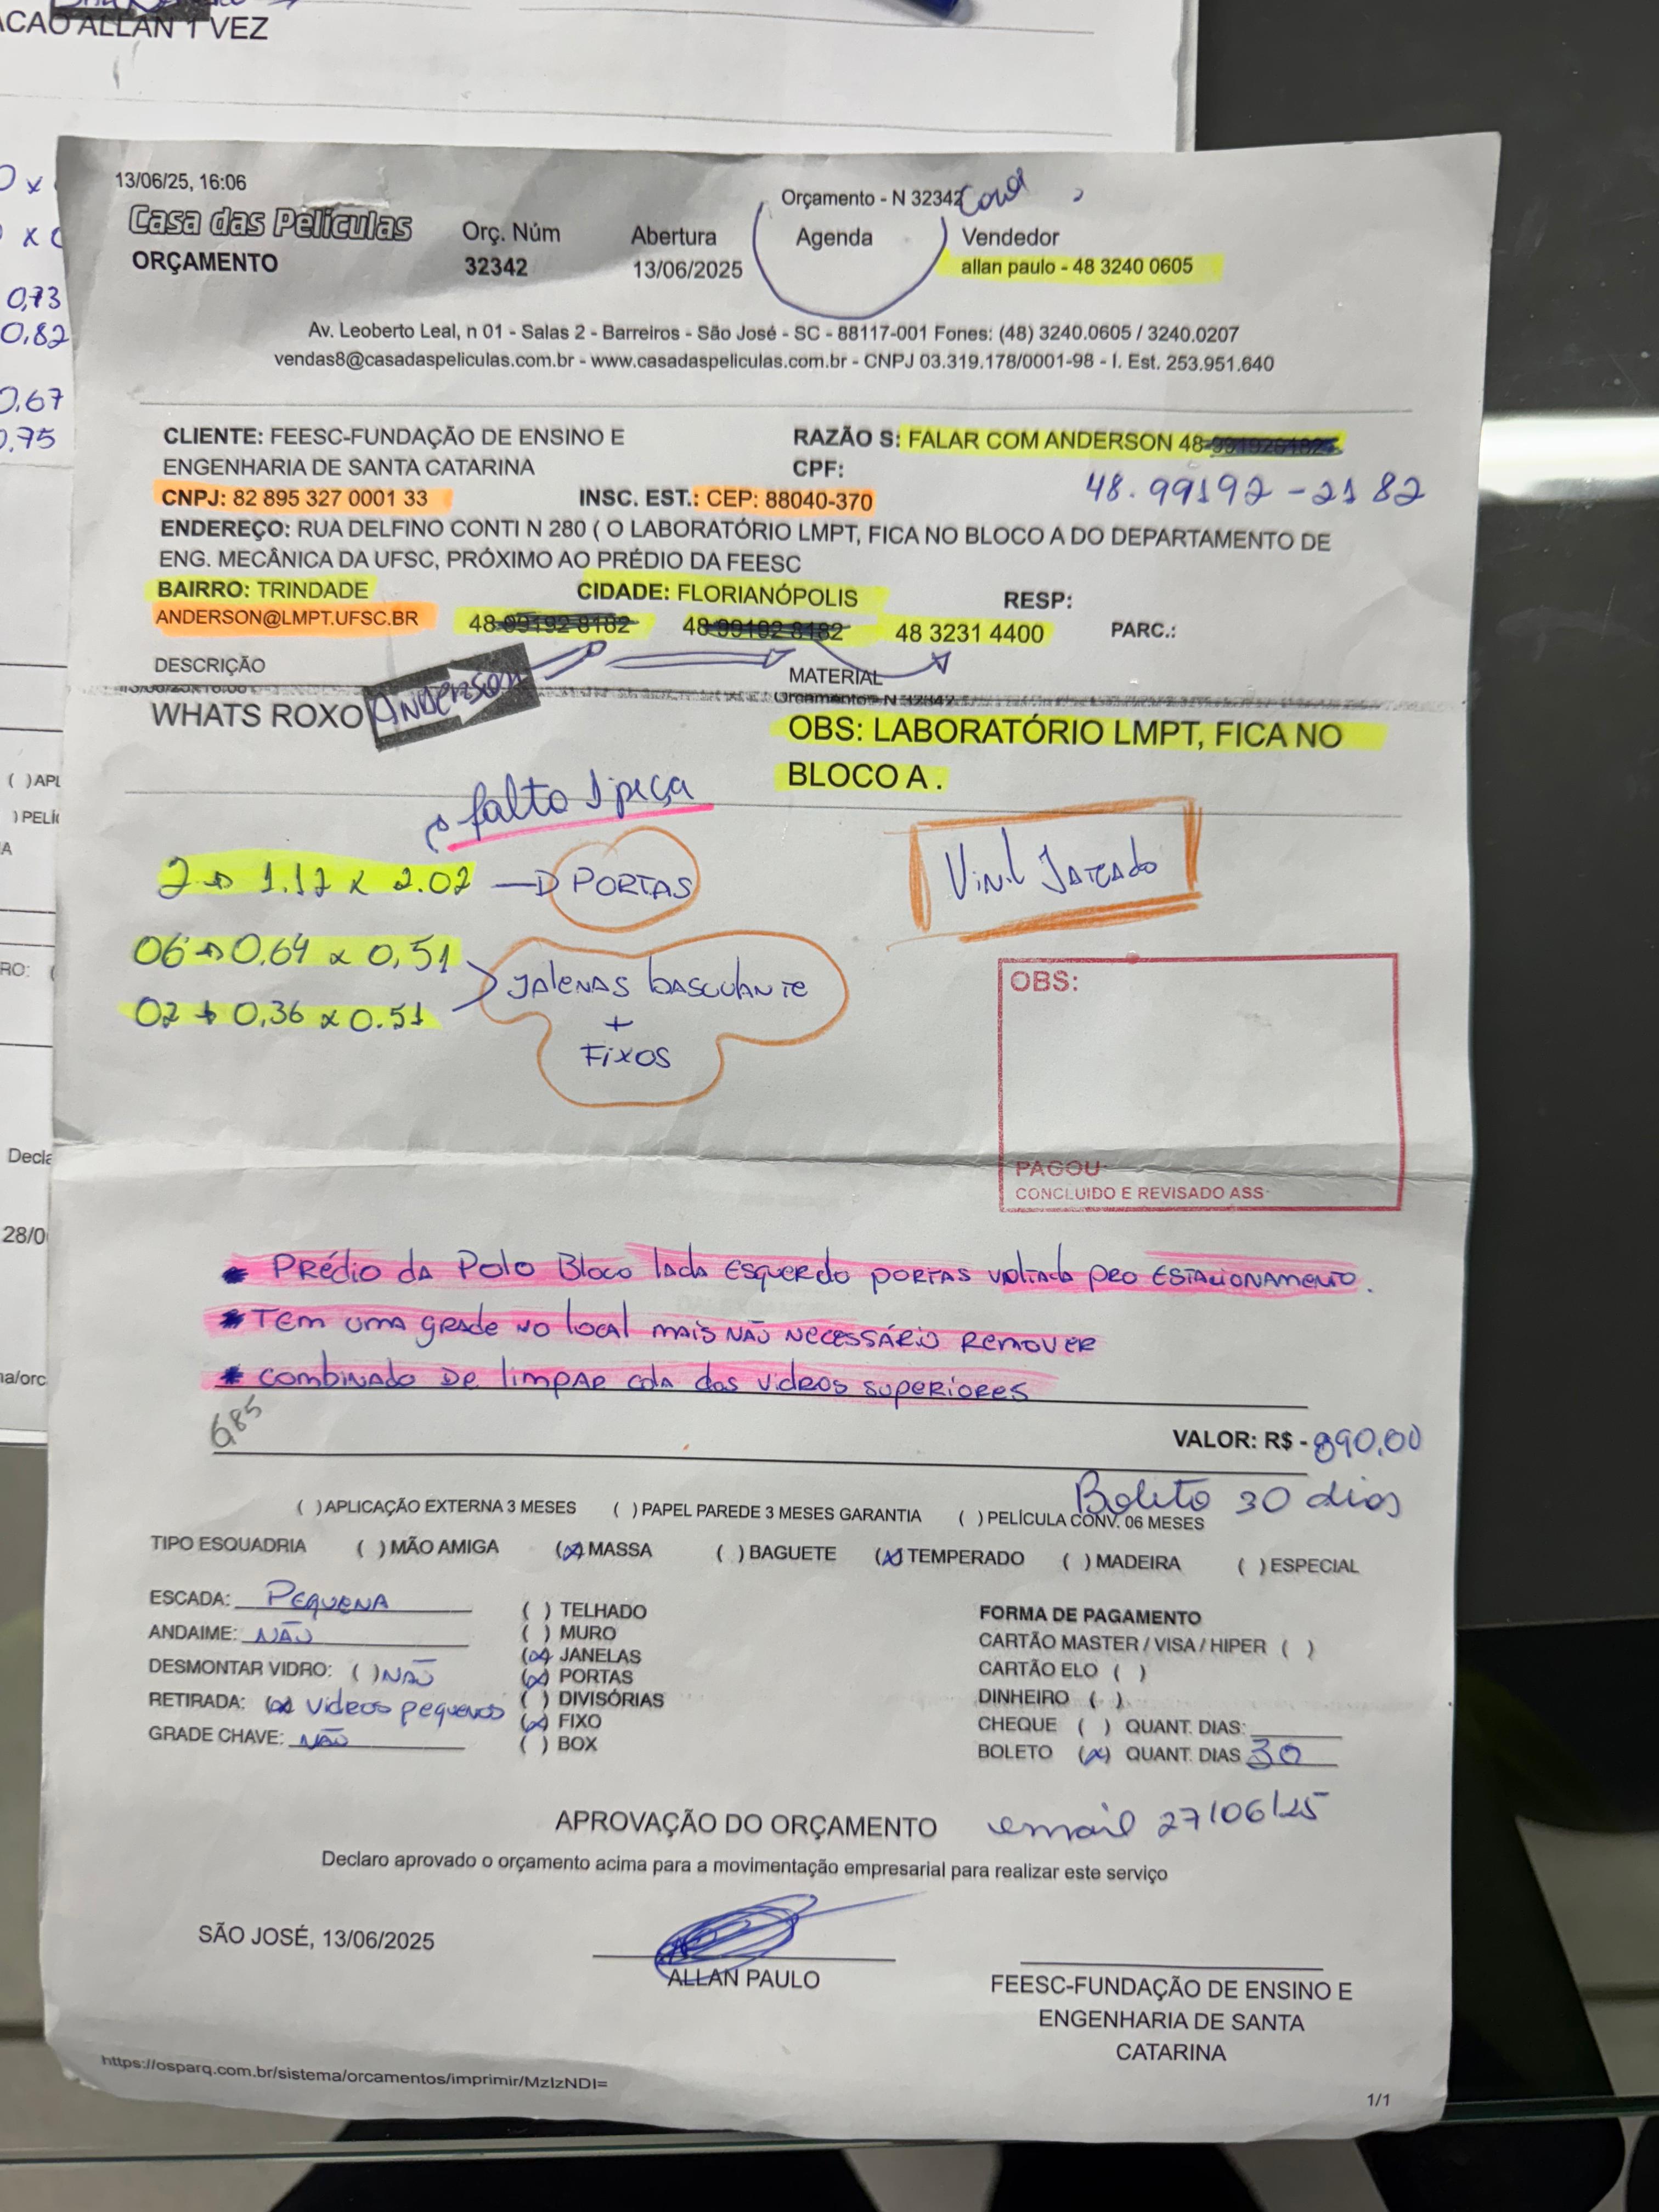 ACAO ALLAN 1 VEZ
13/06/25, 16:06
Orçamento - N 32342
Casa das Películas
Orç. Núm Abertura Agenda Vendedor
ORÇAMENTO 32342 13/06/2025 allan paulo - 48 3240 0605
Av. Leoberto Leal, n 01 - Salas 2 - Barreiros - São José - SC - 88117-001 Fones: (48) 3240.0605 / 3240.0207
vendas8@casadaspeliculas.com.br - www.casadaspeliculas.com.br - CNPJ 03.319.178/0001-98 - I. Est. 253.951.640
0,73
0,82
0,67
0,75
CLIENTE: FEESC-FUNDAÇÃO DE ENSINO E RAZÃO S: FALAR COM ANDERSON 48
ENGENHARIA DE SANTA CATARINA CPF:
48.99192-2182
CNPJ: 82 895 327 0001 33 INSC. EST.: CEP: 88040-370
ENDEREÇO: RUA DELFINO CONTI N 280 ( O LABORATÓRIO LMPT, FICA NO BLOCO A DO DEPARTAMENTO DE
ENG. MECÂNICA DA UFSC, PRÓXIMO AO PRÉDIO DA FEESC
BAIRRO: TRINDADE CIDADE: FLORIANÓPOLIS RESP:
ANDERSON@LMPT.UFSC.BR 48 99192 8182 48 99192 8182 48 3231 4400 PARC.:
DESCRIÇÃO MATERIAL
Orçamento - N 32342
WHATS ROXO Anderson OBS: LABORATÓRIO LMPT, FICA NO
BLOCO A .
falto 1 peça
2 → 1.12 x 2.02 → PORTAS
Vinil Jateado
06 → 0,64 x 0,51
JALENAS basculante
02 → 0,36 x 0.51
+
Fixos
OBS:
PAGOU
CONCLUIDO E REVISADO ASS
* Prédio da Polo Bloco lada esquerdo portas voltada pro estacionamento.
* Tem uma grade no local mais não necessário remover
* combinado de limpar cola dos vidros superiores
685
VALOR: R$ - 890,00
Boleto 30 dias
( )APLICAÇÃO EXTERNA 3 MESES ( )PAPEL PAREDE 3 MESES GARANTIA ( )PELÍCULA CONV. 06 MESES
TIPO ESQUADRIA ( )MÃO AMIGA (x)MASSA ( )BAGUETE (x)TEMPERADO ( )MADEIRA ( )ESPECIAL
ESCADA: Pequena
ANDAIME: NÃO
DESMONTAR VIDRO: ( ) NÃO
RETIRADA: (x) vidros pequenos
GRADE CHAVE: NÃO
( ) TELHADO
( ) MURO
(x) JANELAS
(x) PORTAS
( ) DIVISÓRIAS
(x) FIXO
( ) BOX
FORMA DE PAGAMENTO
CARTÃO MASTER / VISA / HIPER ( )
CARTÃO ELO ( )
DINHEIRO ( )
CHEQUE ( ) QUANT. DIAS:
BOLETO (x) QUANT. DIAS 30
APROVAÇÃO DO ORÇAMENTO email 27/06/25
Declaro aprovado o orçamento acima para a movimentação empresarial para realizar este serviço
SÃO JOSÉ, 13/06/2025
ALLAN PAULO
FEESC-FUNDAÇÃO DE ENSINO E
ENGENHARIA DE SANTA
CATARINA
https://osparq.com.br/sistema/orcamentos/imprimir/MzIzNDI=
1/1
( )APL
)PELÍC
Decla
28/0
na/orc